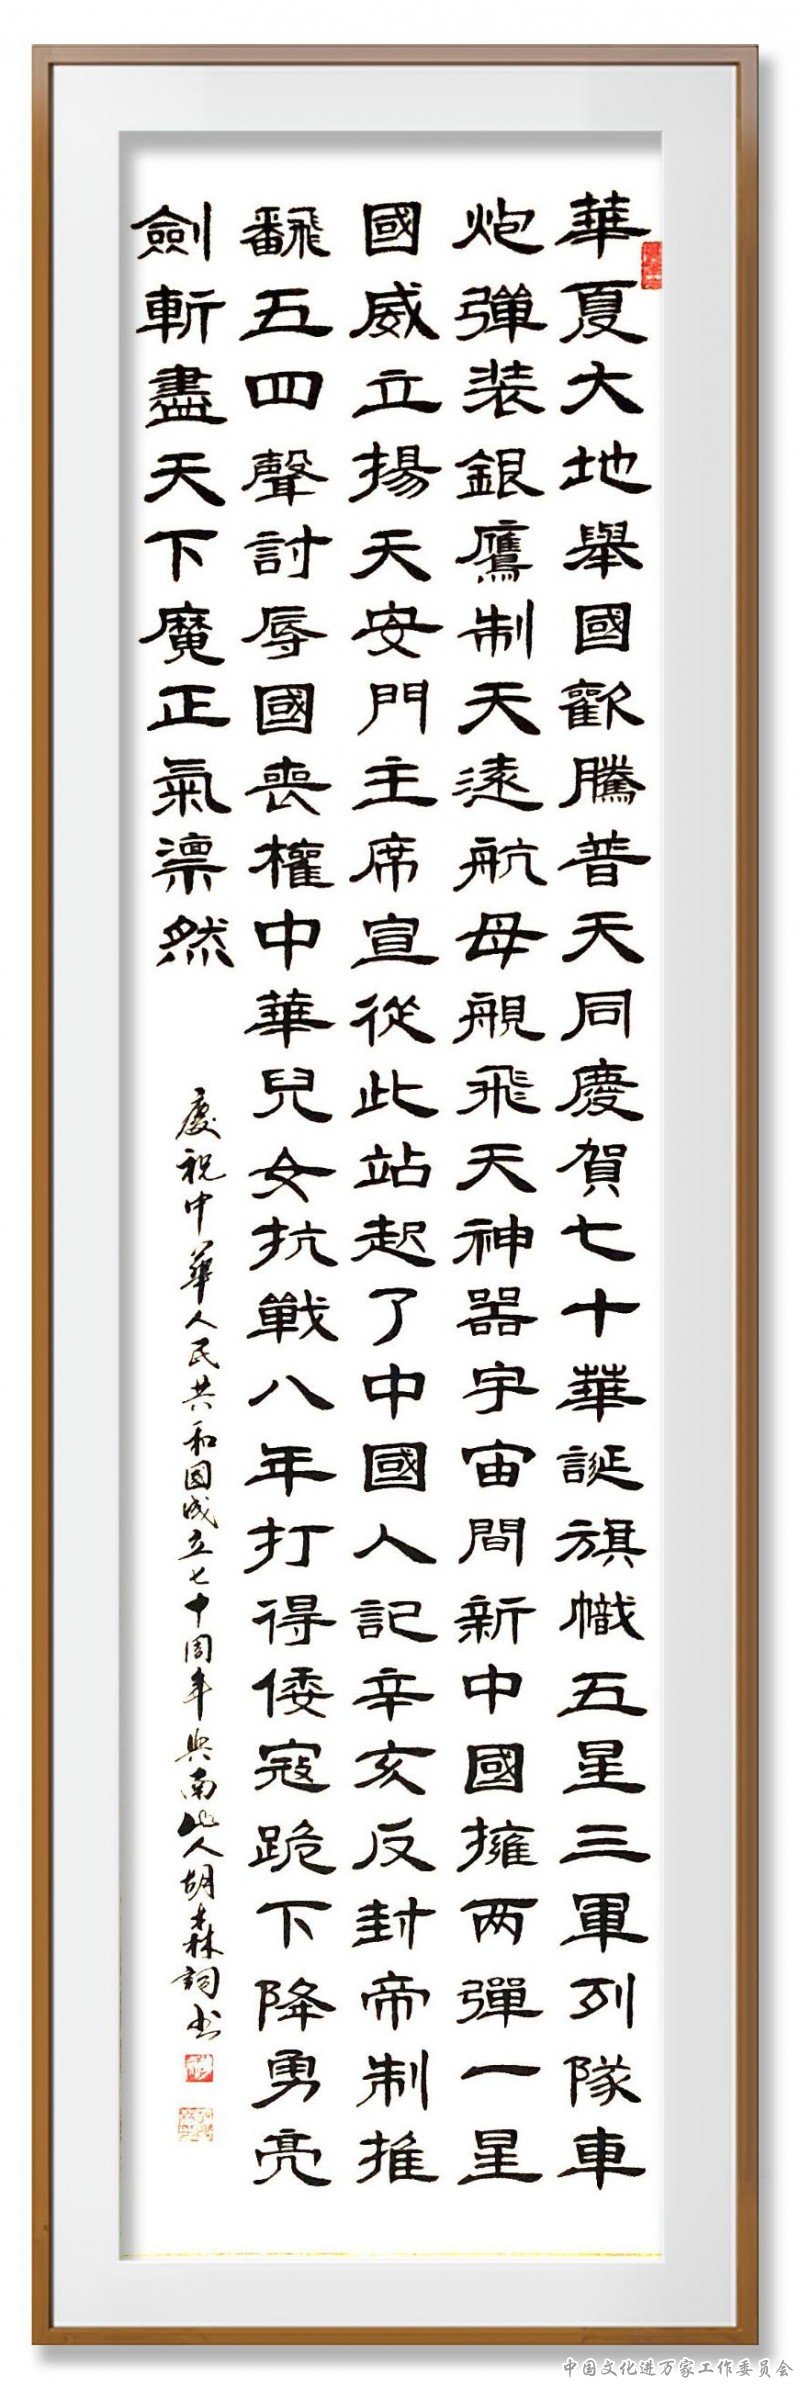 華夏大地舉國歡騰普天同慶賀七十華誕旗幟五星三軍列隊車
炮彈装銀鷹制天遠航母艦飛天神器宇宙間新中國擁两彈一星
國威立揚天安門主席宣從此站起了中國人記辛亥反封帝制推
翻五四聲討辱國喪權中華兒女抗戰八年打得倭寇跪下降勇亮
劍斬盡天下魔正氣凛然
慶祝中華人民共和国成立七十周年 南山人胡森林詞书
中国文化进万家工作委员会